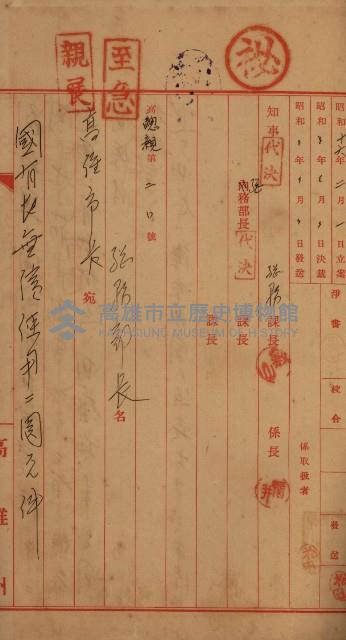 秘
至急
親展
昭和十六年二月一日立案
昭和 年 月 日決裁
昭和 年 月 日發送
淨書
校合
發送
係取扱者
知事 代決
總務部長 代決
總務課長
係長
課長
課長
高總親第二〇號
總務部長名
高雄市長 宛
國有地無償使用ニ關スル件
高雄州
高雄市立歷史博物館
KAOHSIUNG MUSEUM OF HISTORY